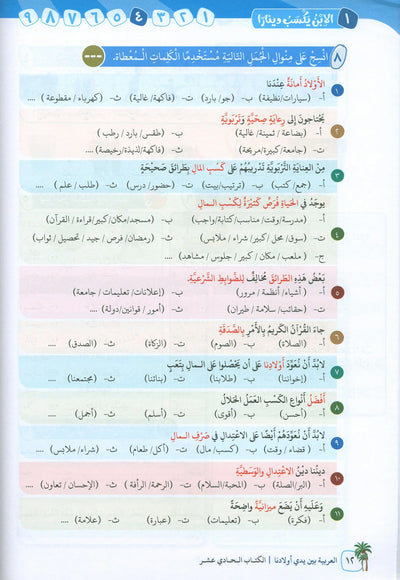 ١ الاِبْنُ يَكْسَبُ دِينَارًا ٩ ٨ ٧ ٦ ٥ ٤ ٣ ٢ ١
٨ انْسِجْ عَلَى مِنْوالِ الْجُمَلِ التَّالِيَةِ مُسْتَخْدِمًا الْكَلِماتِ الْـمُعْطاةِ.
١ الأَوْلَادُ أَمانَةٌ عِنْدَنا
أ- (سيارات/نظيفة) ب- (جو/بارد) ت- (فاكهة/غالية) ث- (كهرباء / مقطوعة) ....
٢ يَحْتاجونَ إلى رِعايَةٍ صِحِّيَّةٍ وَتَرْبَوِيَّةٍ
أ- (بضاعة / ثمينة/ غالية) ب- (طقس/ بارد / رطب)
ت- (جامعة/كبيرة/مريحة) ث- (فاكهة/لذيذة/رخيصة) ....
٣ مِنَ العِنايَةِ التَّرْبَوِيَّةِ تَدْرِيبُهُمْ عَلى كَسْبِ المالِ بِطَرائِقَ صَحيحَةٍ
أ- (جمع/ كتب) ب- (ترتيب/بيت) ت- (حضور/ درس) ث- (طلب / علم) ....
٤ يوجَدُ في الحَياةِ فُرَصٌ كَثيرَةٌ لِكَسْبِ المالِ
أ- (مدرسة/وقت/ مناسب/كتابة/واجب) ب- (مسجد/مكان/كبير/قراءة / القرآن)
ت- (سوق/ محل /كبير/ شراء / ملابس) ث- (رمضان/ فرص / جيد / تحصيل / ثواب)
ج- (ملعب / مكان / كبير / جلوس / مشاهد) ....
٥ بَعْضُ هَذِهِ الطَّرائِقِ مُخالِفٌ لِلضَّوابِطِ الشَّرْعِيَّةِ.
أ- (أشياء / أنظمة / مرور) ب- (إعلانات/ تعليمات / جامعة)
ت- (حقائب/ سلامة / طيران) ث- (أمور / قوانين/دولة) ....
٦ جاءَ القُرْآنُ الكَريمُ بِالأَمْرِ بِالصَّدَقَةِ
أ- (الصلاة) ب- (الصوم) ت- (الزكاة) ث- (الصدق) ....
٧ لابُدَّ أَنْ نُعَوِّدَ أَوْلادَنا عَلى أَنْ يَحْصُلوا عَلى الـمالِ بِتَعَبٍ
أ- (إخواننا) ب- (طلابنا) ت- (بناتنا) ث- (مجتمعنا) ....
٨ أَفْضَلُ أَنْواعِ الكَسْبِ العَمَلُ الحَلالُ
أ- (أحسن) ب- (أقوى) ت- (أسلم) ث- (أجمل) ....
٩ لابُدَّ أَنْ نُعَوِّدَهُمْ أَيْضًا عَلى الاِعْتِدالِ في صَرْفِ المالِ
أ- (قضاء / وقت) ب- (كسب/ مال) ت- (أكل/ طعام) ث- (شراء/ ملابس) ....
١٠ دينُنا دينُ الاِعْتِدالِ وَالوَسَطِيَّةِ
أ- (البر/الصلة) ب- (المحبة/السلام) ت- (الرحمة/ الرأفة) ث- (الإحسان / تعاون) ....
١١ وَعَلَيهِ أَنْ يَضَعَ ميزانِيَّةً واضِحَةً
أ- (فكرة) ب- (تعليمات) ت- (عبارة) ث- (علامة) ....
١٢ العربية بين يدي أولادنا | الكتاب الحادي عشر